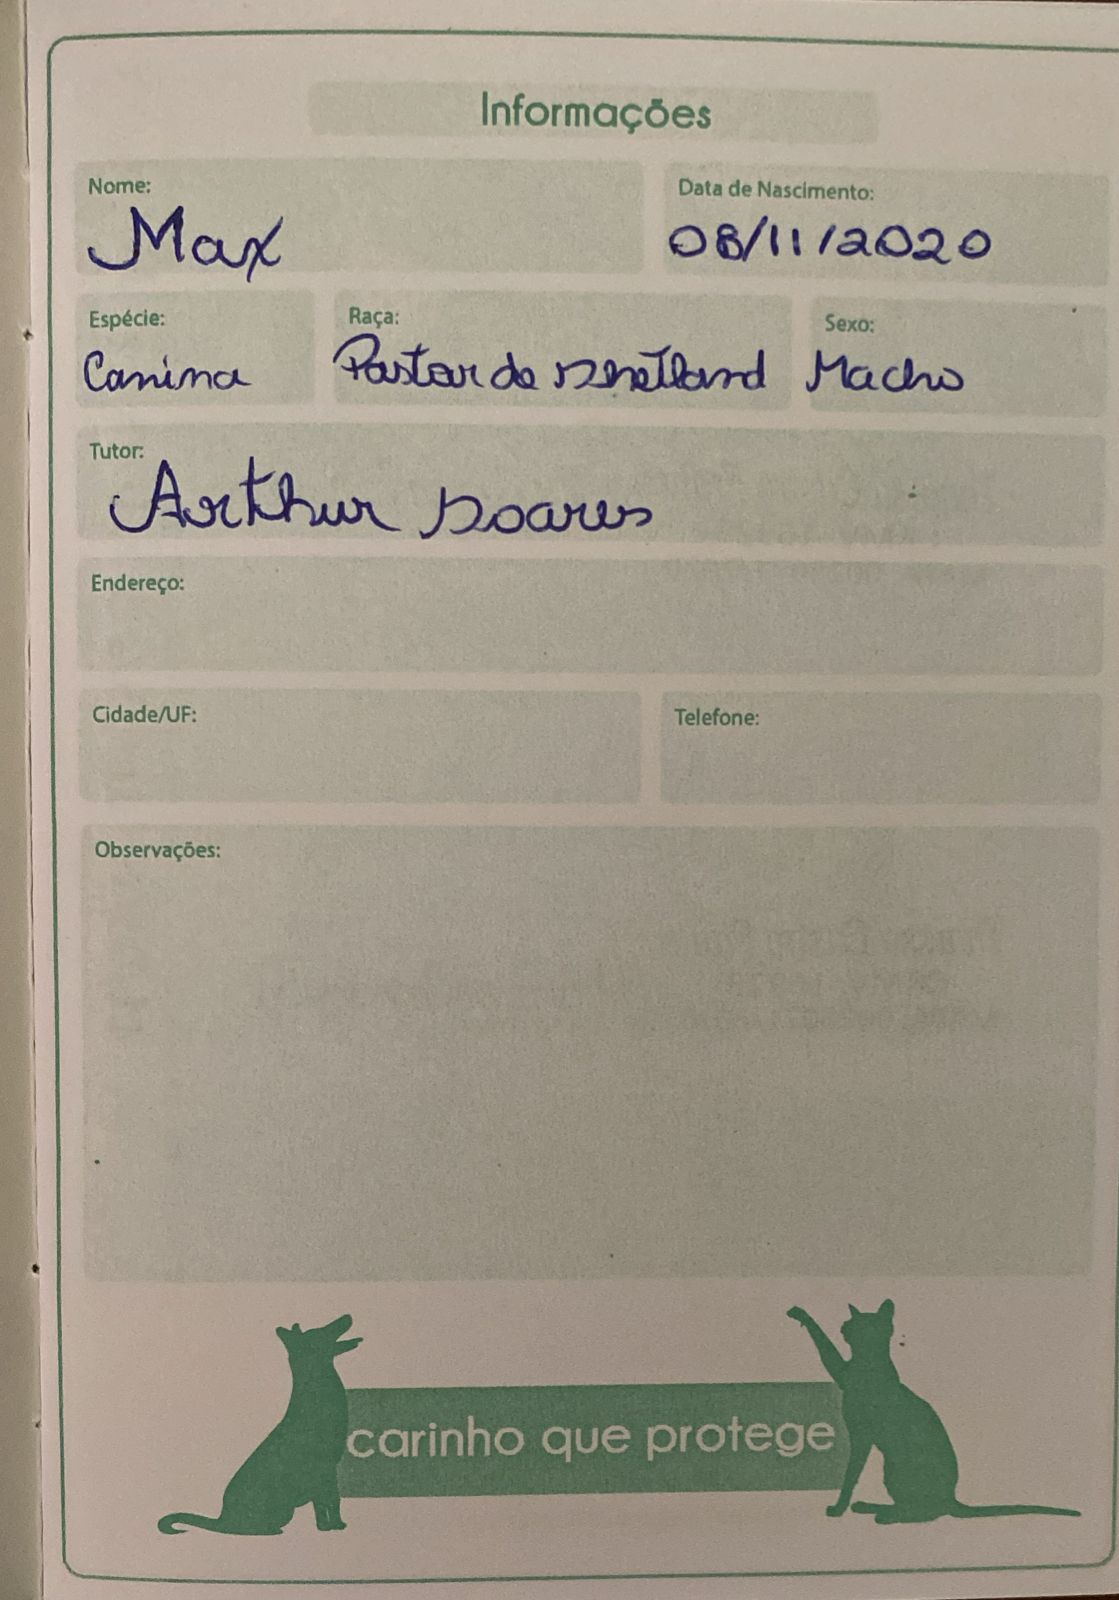 Informações
Nome:
Max
Data de Nascimento:
08/11/2020
Espécie:
Canina
Raça:
Pastor de Shetland
Sexo:
Macho
Tutor:
Arthur Soares
Endereço:
Cidade/UF:
Telefone:
Observações:
carinho que protege